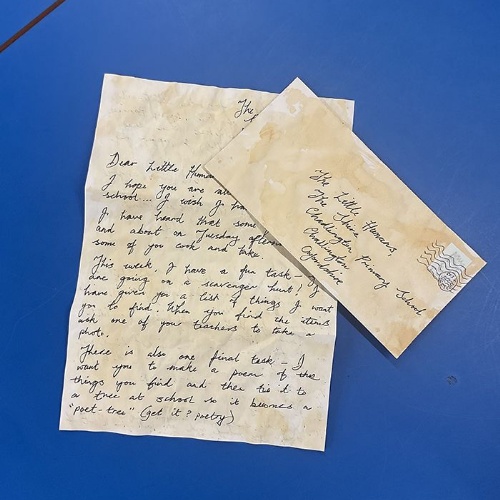 The
Dear Little Huma
I hope you are all
school... I wish I ha
I have heard that some
and about on Tuesday aftern
some of you cook and bake
This week, I have a fun task -
are going on a scavenger hunt! I
have given you a list of things I want
you to find. When you find the items
ask one of your teachers to take a
photo.
There is also one final task - I
want you to make a poem of the
things you find and then tie it to
a tree at school so it becomes a
"poet-tree" (get it? poetry)
The Little Humans,
The Shire
Chadlington Primary School
Chadlington
Oxfordshire